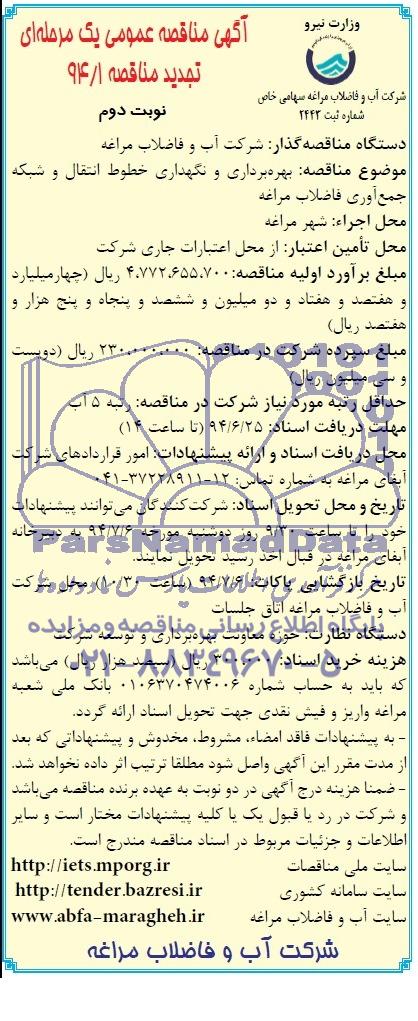 آگهی مناقصه عمومی یک مرحله‌ای
تجدید مناقصه ۹۴/۱
نوبت دوم
وزارت نیرو
شرکت آب و فاضلاب مراغه سهامی خاص
شماره ثبت ۲۴۴۲
دستگاه مناقصه‌گذار: شرکت آب و فاضلاب مراغه
موضوع مناقصه: بهره‌برداری و نگهداری خطوط انتقال و شبکه
جمع‌آوری فاضلاب مراغه
محل اجراء: شهر مراغه
محل تأمین اعتبار: از محل اعتبارات جاری شرکت
مبلغ برآورد اولیه مناقصه: ۴،۷۷۲،۶۵۵،۷۰۰ ریال (چهارمیلیارد
و هفتصد و هفتاد و دو میلیون و ششصد و پنجاه و پنج هزار و
هفتصد ریال)
مبلغ سپرده شرکت در مناقصه: ۲۳۰،۰۰۰،۰۰۰ ریال (دویست
و سی میلیون ریال)
حداقل رتبه مورد نیاز شرکت در مناقصه: رتبه ۵ آب
مهلت دریافت اسناد: ۹۴/۶/۲۵ (تا ساعت ۱۴)
محل دریافت اسناد و ارائه پیشنهادات: امور قراردادهای شرکت
آبفای مراغه به شماره تماس: ۱۲-۳۷۲۲۸۹۱۱-۰۴۱
تاریخ و محل تحویل اسناد: شرکت‌کنندگان می‌توانند پیشنهادات
خود را تا ساعت ۹/۳۰ روز دوشنبه مورخه ۹۴/۷/۶ به دبیرخانه
آبفای مراغه در قبال اخذ رسید تحویل نمایند.
تاریخ بازگشایی پاکات: ۹۴/۷/۶ (ساعت ۱۰/۳۰) محل شرکت
آب و فاضلاب مراغه اتاق جلسات
دستگاه نظارت: حوزه معاونت بهره‌برداری و توسعه شرکت
هزینه خرید اسناد: ۳۰۰،۰۰۰ ریال (سیصد هزار ریال) می‌باشد
که باید به حساب شماره ۰۱۰۶۳۷۰۴۷۴۰۰۶ بانک ملی شعبه
مراغه واریز و فیش نقدی جهت تحویل اسناد ارائه گردد.
- به پیشنهادات فاقد امضاء، مشروط، مخدوش و پیشنهاداتی که بعد
از مدت مقرر این آگهی واصل شود مطلقا ترتیب اثر داده نخواهد شد.
- ضمنا هزینه درج آگهی در دو نوبت به عهده برنده مناقصه می‌باشد
و شرکت در رد یا قبول یک یا کلیه پیشنهادات مختار است و سایر
اطلاعات و جزئیات مربوط در اسناد مناقصه مندرج است.
سایت ملی مناقصات http://iets.mporg.ir
سایت سامانه کشوری http://tender.bazresi.ir
سایت آب و فاضلاب مراغه www.abfa-maragheh.ir
شرکت آب و فاضلاب مراغه
ParsNamadData
پایگاه اطلاع رسانی مناقصه و مزایده
۰۲۱-۸۸۳۴۹۶۷۰-۵